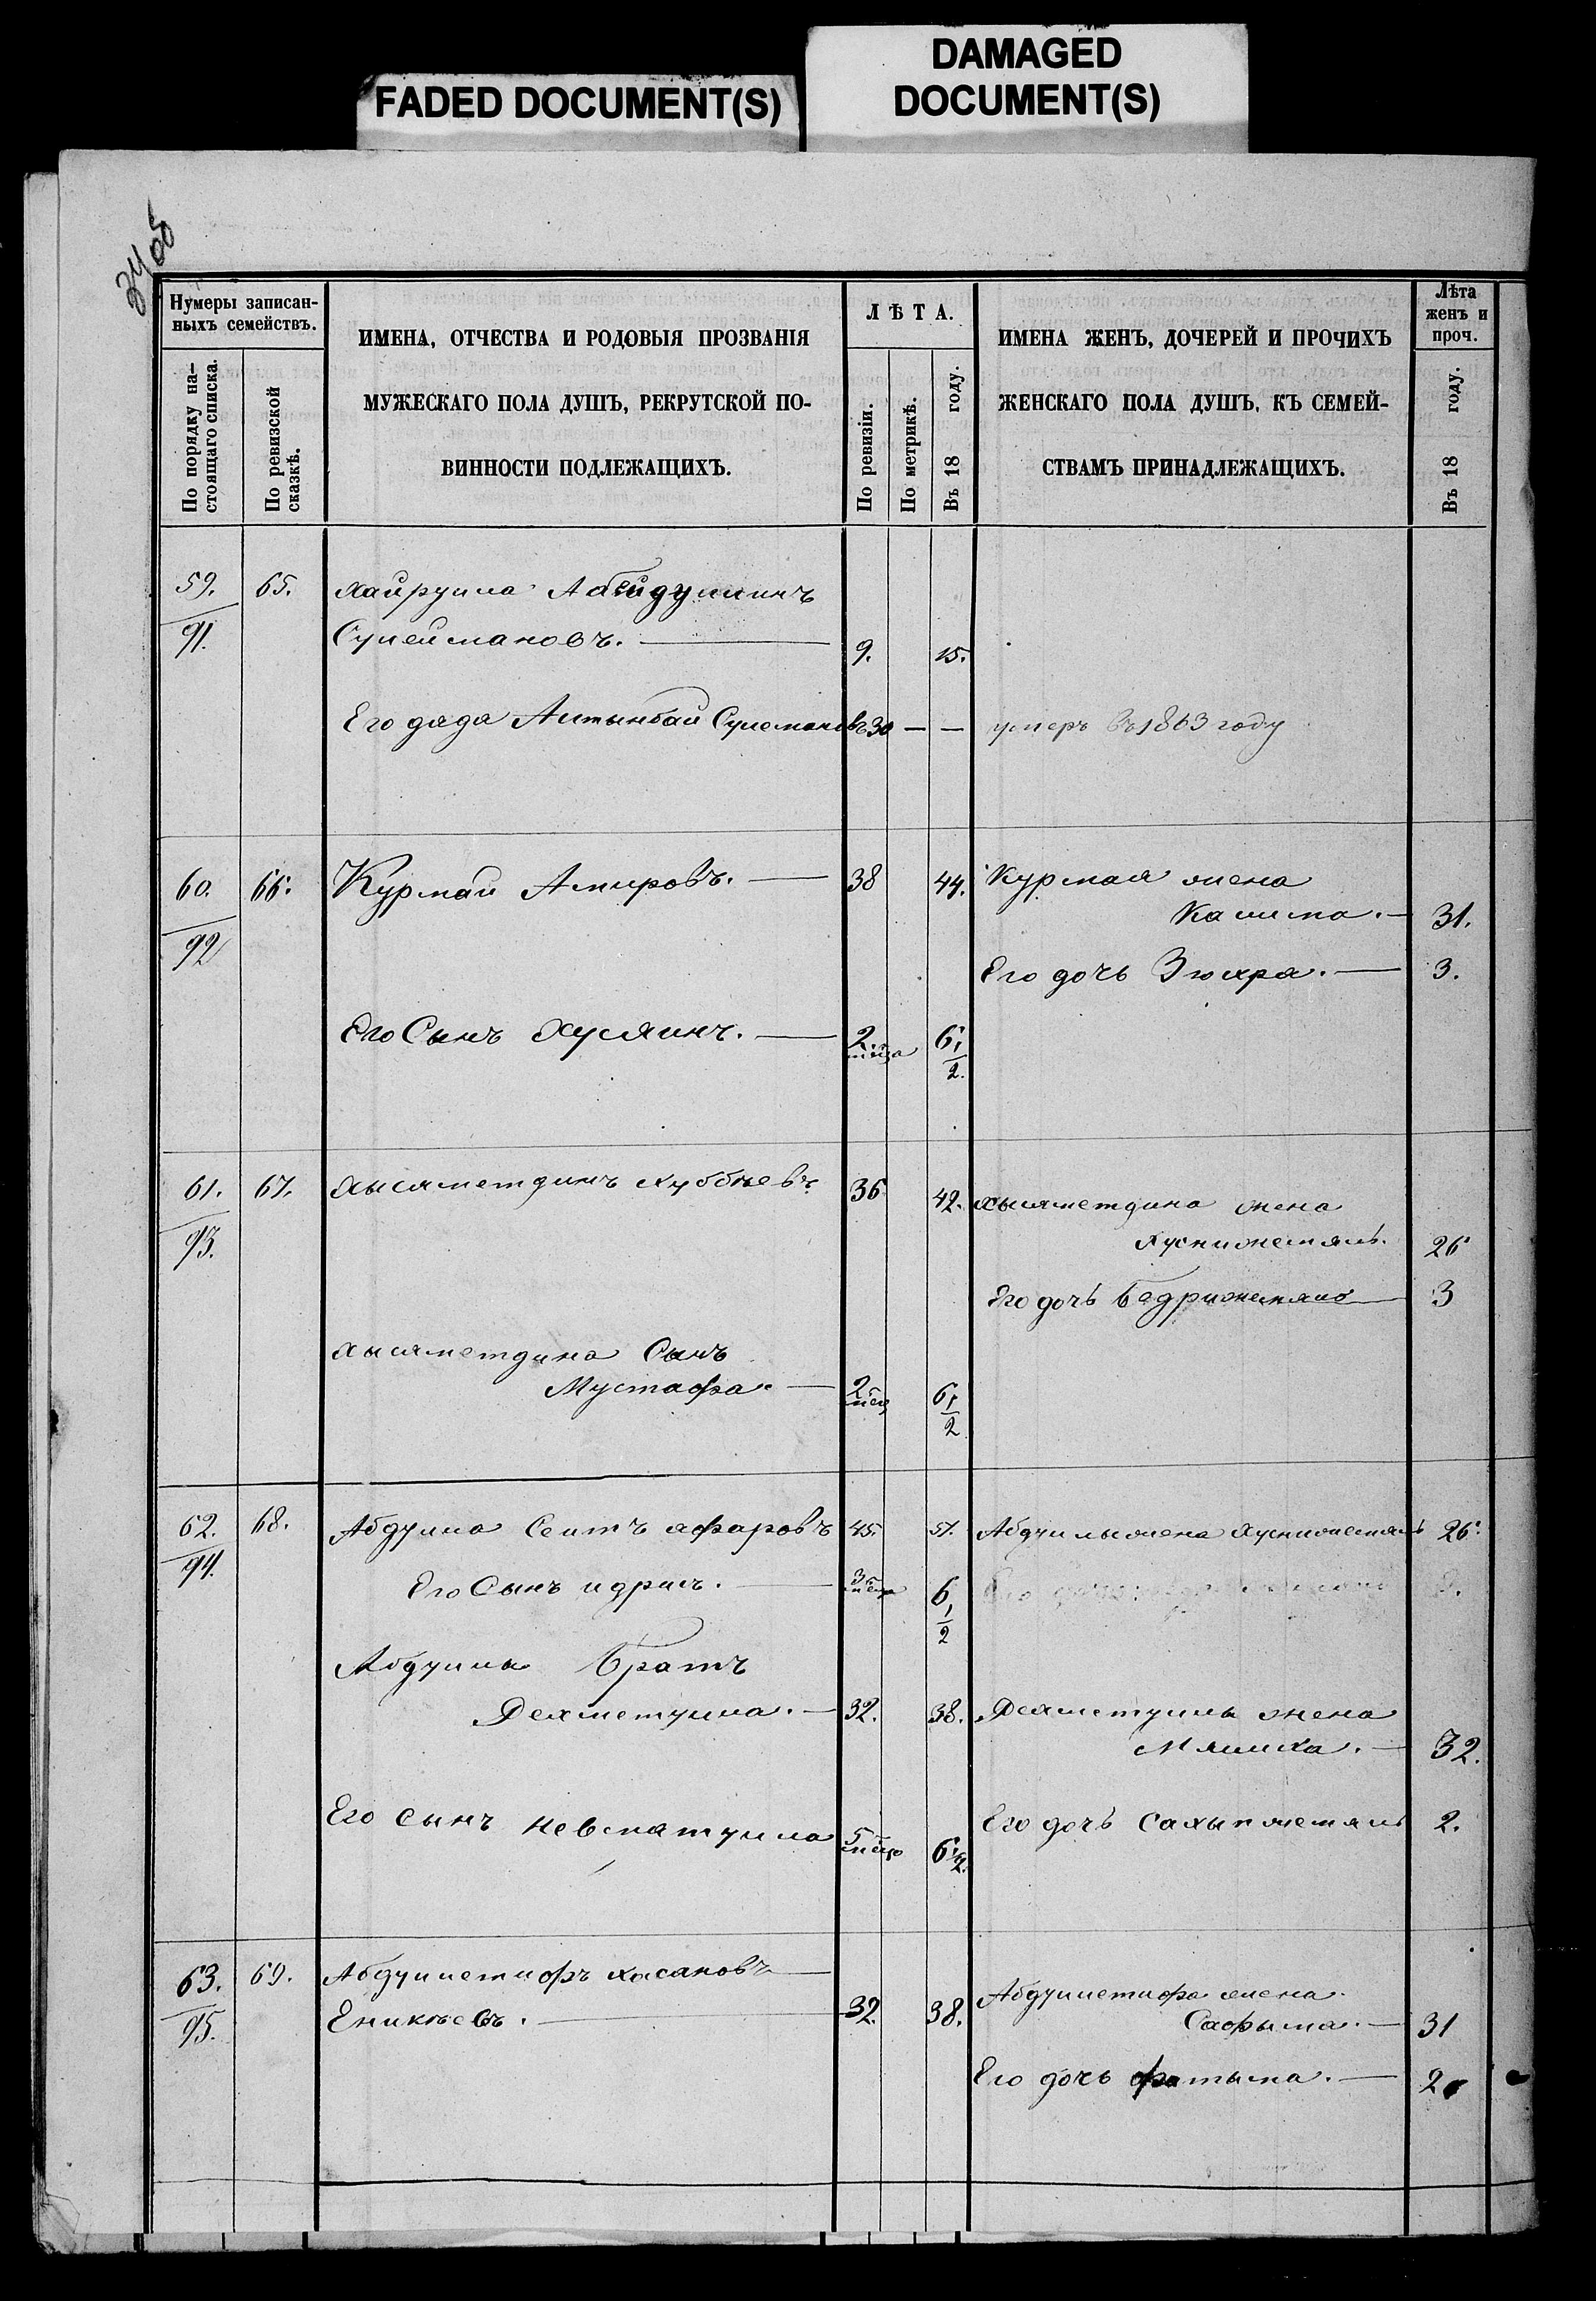 FADED DOCUMENT(S)
DAMAGED
DOCUMENT(S)
34 об
Нумеры записан-
ныхъ семействъ.
По порядку на-
стоящаго списка.
По ревизской
сказкѣ.
ИМЕНА, ОТЧЕСТВА И РОДОВЫЯ ПРОЗВАНІЯ
МУЖЕСКАГО ПОЛА ДУШЪ, РЕКРУТСКОЙ ПО-
ВИННОСТИ ПОДЛЕЖАЩИХЪ.
ЛѢТА.
По ревизіи.
По метрикѣ.
Въ 18 году.
ИМЕНА ЖЕНЪ, ДОЧЕРЕЙ И ПРОЧИХЪ
ЖЕНСКАГО ПОЛА ДУШЪ, КЪ СЕМЕЙ-
СТВАМЪ ПРИНАДЛЕЖАЩИХЪ.
Лѣта
женъ и
проч.
Въ 18 году.
59. 65. Хайрулла Абейдуллинъ
91. Сулеймановъ. — 9. 15.
Его дядя Алтынбай Сулемановъ 30 — — умеръ въ 1863 году
60. 66. Курмай Амировъ. — 38 44. Курмая жена
Калима. — 31.
92
Его дочь Зюхра. — 3.
Его Сынъ Хусяинъ. — 2 мѣсяца 6 1/2.
61. 67. Хысяметдинъ Хуббѣевъ 36 42. Хысяметдина жена
93. Хуснижемялъ. 26
Его дочь Бедрижемялъ — 3
Хысяметдина Сынъ
Мустафа. — 2 мѣс 6 1/2
62. 68. Абдулла Сеитъ яфаровъ 45. 51. Абдуллы жена Хуснижемялъ 26.
94. Его Сынъ идрисъ. — 3 мѣсяца 6 1/2 Его дочь
Абдуллы Братъ
Дехметулла. — 32. 38. Дехметуллы жена
Мялика. — 32.
Его сынъ Невматулла 5 мѣсяц 6 1/2. Его дочь Сахыпжемялъ 2.
63. 69. Абдуллетифъ Хасановъ —
95. Еникѣевъ. — 32. 38. Абдуллетифа жена
Сафыма. — 31
Его дочь Фатыма. — 2